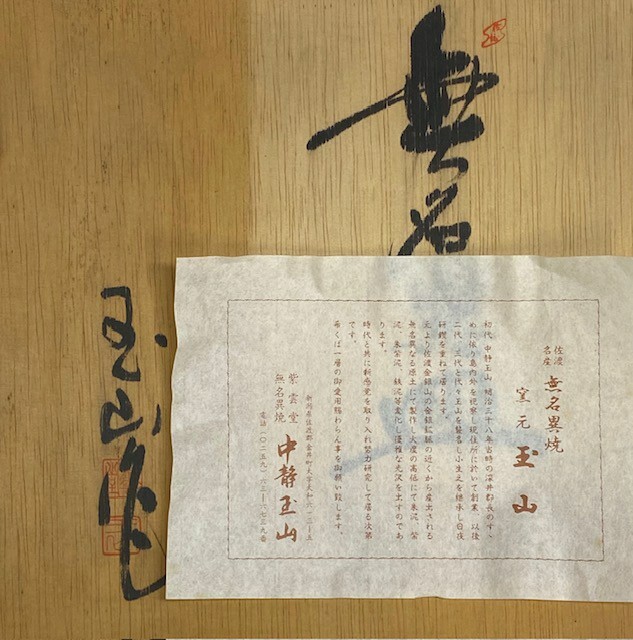 無名
玉山作
佐渡
名産
無名異焼
窯元 玉山
初代、中静玉山 明治三十八年当時の深井郡長のすゝ
めに依り島内外を視察し現住所に於いて創業、以後
二代、三代と代々玉山を襲名し小生之を継承し日夜
研鑽を重ねて居ります。
元より佐渡金銀山の金銀鉱脈の近くから産出される
無名異なる原土にて製作し火度の高低にて朱泥、紫
泥、朱紫泥、銑泥等変化し優雅な光沢を出すのであ
ります。
時代と共に新感覚を取り入れ努力研究して居る次第
です。
希くば一層の御愛用賜わらん事を御願い致します。
新潟県佐渡郡金井町大字大和六-三-五
紫雲堂
無名異焼
中静玉山
電話〇二五九-六三-